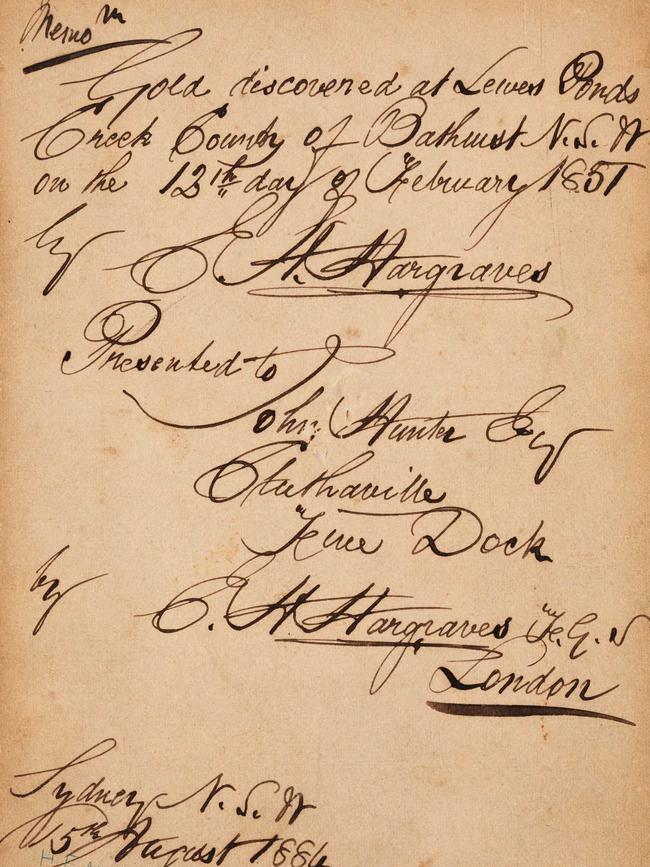 Memo m
Gold discovered at Lewes Ponds
Creek County of Bathurst N.S.W
on the 12th day of February 1851
by E. H. Hargraves
Presented to
John Hunter Esq
Cluthaville
Five Dock
by E. H. Hargraves F.G.S
London
Sydney N.S.W
5th August 1886